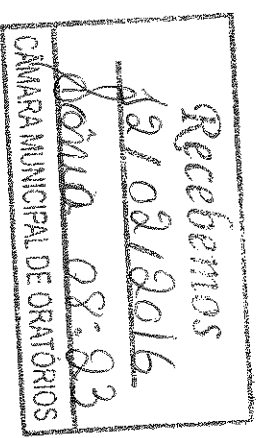 Recebemos
12/02/2016
Sônia 08:23
CÂMARA MUNICIPAL DE ORATÓRIOS